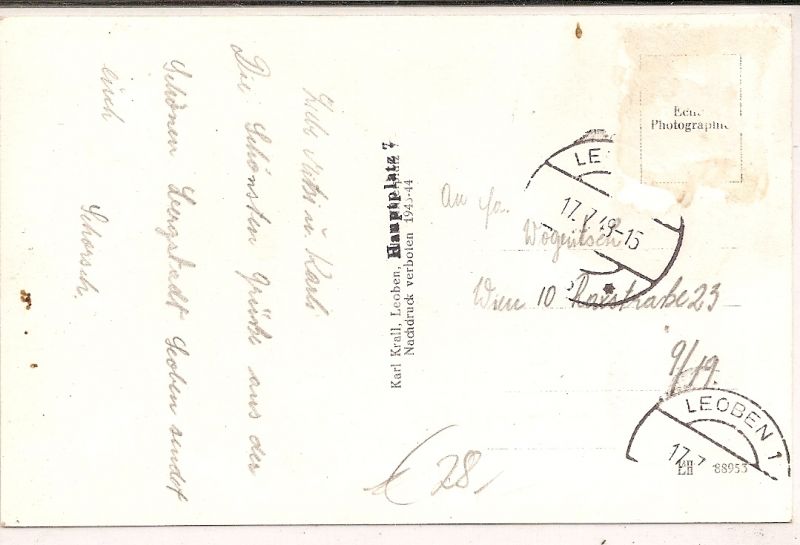 Liebe Mitzi u Karli
Die Schönsten Grüße aus der
Schönen Bergstadt Leoben sendet
euch
Schorsch.
Karl Krall, Leoben, Hauptplatz 7
Nachdruck verboten 1943-44
Echte
Photographie
LE
17.7.49-15
An Fa.
Wien 10 Raxstraße 23
9/19.
LEOBEN 1
17.7
LH 88953
(28